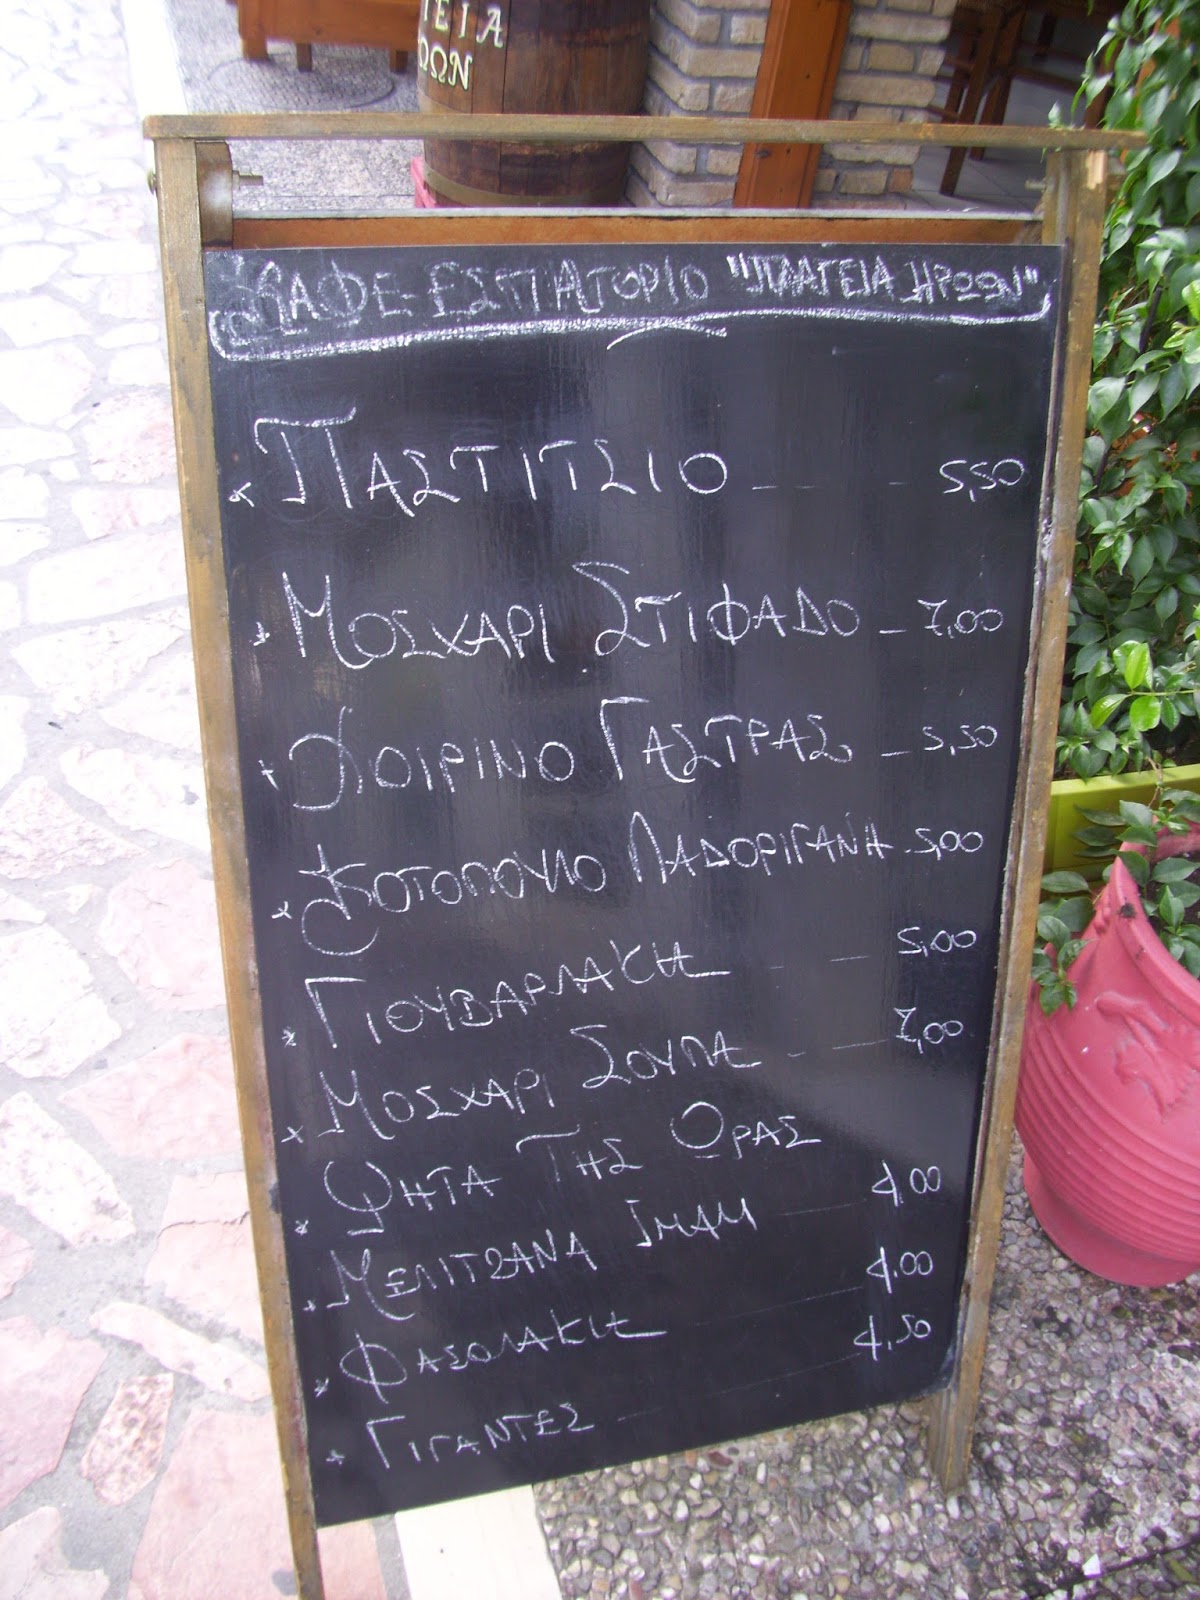 ΤΕΙΑ
ΩΩΝ
ΚΑΦΕ-ΕΣΤΙΑΤΟΡΙΟ "ΠΛΑΤΕΙΑ ΗΡΩΩΝ"
* ΠΑΣΤΙΤΣΙΟ _ _ _ 5,50
* ΜΟΣΧΑΡΙ ΣΤΙΦΑΔΟ _ 7,00
* ΧΟΙΡΙΝΟ ΓΑΣΤΡΑΣ _ 5,50
* ΚΟΤΟΠΟΥΛΟ ΛΑΔΟΡΙΓΑΝΗ - 5,00
* ΓΙΟΥΒΑΡΛΑΚΙΑ _ _ 5,00
* ΜΟΣΧΑΡΙ ΣΟΥΠΑ _ _ 7,00
* ΨΗΤΑ ΤΗΣ ΩΡΑΣ
* ΜΕΛΙΤΖΑΝΑ ΙΜΑΜ _ _ 4,00
* ΦΑΣΟΛΑΚΙΑ _ _ 4,00
* ΓΙΓΑΝΤΕΣ _ _ 4,50